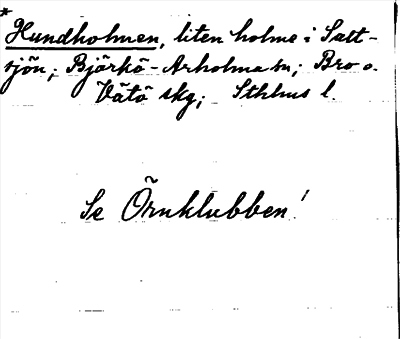 *
Hundholmen, liten holme i Salt-
sjön; Björkö-Arholma sn; Bro o.
Vätö skg; Sthlms l.
Se Örnklubben!